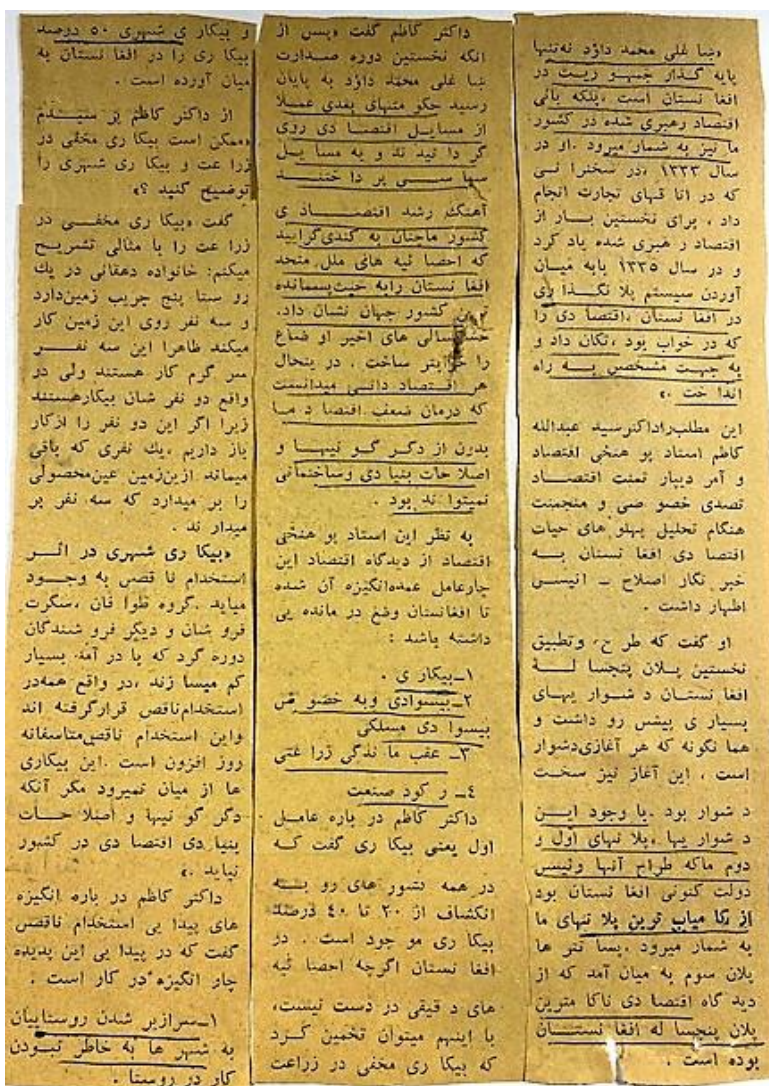 «ښاغلی محمد داؤد نه‌تنها
پایه گذار جمهو ریت در
افغا نستان است ،بلکه بانی
اقتصاد رهبری شده در کشور
ما نیز به شمار میرود .او در
سال ۱۳۳۳ ،در سخنرا نی
که در اتا قهای تجارت انجام
داد ، برای نخستین بار از
اقتصاد ر هبری شده یاد کرد
و در سال ۱۳۳۵ بابه میان
آوردن سیستم پلا نگذا ری
در افغا نستان ،اقتصا دی را
که در خواب بود ،تکان داد و
به جهت مشخص به راه
اندا خت .»
این مطلب‌راداکتر سید عبدالله
کاظم استاد پو هنځی اقتصاد
و آمر دیپار تمنت اقتصاد
تصدی خصو صی و منجمنت
هنگام تحلیل پهلو های حیات
اقتصا دی افغا نستان به
خبر نگار اصلاح ـ انیس
اظهار داشت .
او گفت که طر ح، وتطبیق
نخستین پلان پنجسا لهٔ
افغا نستان د شوار یهای
بسیار ی پیش رو داشت و
هما نگونه که هر آغازی‌دشوار
است ، این آغاز نیز سخت
د شوار بود .با وجود این
د شوار یها ،پلا نهای اول و
دوم ماکه طراح آنها رئیس
دولت کنونی افغا نستان بود
از کا میاب ترین پلا نهای ما
به شمار میرود .بسا نتر ها
پلان سوم به میان آمد که از
دید گاه اقتصا دی ناکا مترین
پلان پنجسا له افغا نستان
بوده است .
داکتر کاظم گفت «پس از
انکه نخستین دوره صدارت
ښا غلی محمد داؤد به پایان
رسید حکو متهای بعدی عملا
از مسایل اقتصا دی روی
گر دا نید ند و به مسا یل
سیا سی پر دا ختند
آهنگ رشد اقتصاد ی
کشور ماچنان به کندی‌گرایید
که احصا ئیه های ملل متحد
افغا نستان رابه حیث‌پسمانده
ترین کشور جهان نشان داد.
خشکسالی های اخیر او ضاع
را خرابتر ساخت . درینحال
هر اقتصاد دانی میدانست
که درمان ضعف اقتصا د ما
بدون از دگر گو نیها و
اصلا حات بنیا دی وساختمانی
نمیتوا ند بود .
به نظر این استاد پو هنځی
اقتصاد از دیدگاه اقتصاد این
چارعامل عمده‌انگیزه آن شده
تا افغانستان وضع در مانده یی
داشته باشد :
۱ـ‌بیکار ی .
۲ـ‌بیسوادی وبه خصو ص
بیسوا دی مسلکی
۳ـ عقب ما ندگی زرا عتی
٤ـ ر کود صنعت
داکتر کاظم در باره عامل
اول یعنی بیکا ری گفت که
در همه کشور های رو به
انکشاف از ۲۰ تا ٤۰ درصد
بیکا ری مو جود است . در
افغا نستان اگرچه احصا ئیه
های د قیقی در دست نیست،
با اینهم میتوان تخمین کرد
که بیکا ری مخفی در زراعت
و بیکار ی شهری ۵۰ درصد
بیکا ری را در افغا نستان به
میان آورده است .
از داکتر کاظم پر سیدم
«ممکن است بیکا ری مخفی در
زرا عت و بیکا ری شهری را
توضیح کنید ؟»
گفت «بیکا ری مخفی در
زرا عت را با مثالی تشریح
میکنم: خانواده دهقانی در یك
رو ستا پنج جریب زمین‌دارد
و سه نفر روی این زمین کار
میکند ظاهرا این سه نفر
سر گرم کار هستند ولی در
واقع دو نفر شان بیکارهستند
زیرا اگر این دو نفر را ازکار
باز داریم ،یك نفری که باقی
میماند ازین‌زمین عین‌محصولی
را بر میدارد که سه نفر بر
میدار ند .
«بیکا ری شهری در اثر
استخدام نا قص به وجود
میاید .گروه طوا فان ،سگرت
فرو شان و دیگر فرو شندگان
دوره گرد که با در آمد بسیار
کم میسا زند ،در واقع همه‌در
استخدام‌ناقص قرارگرفته اند
واین استخدام ناقص‌متاسفانه
روز افزون است .این بیکاری
ها از میان نمیرود مگر آنکه
دگر گو نیها و اصلا حات
بنیا دی اقتصا دی در کشور
نیاید .»
داکتر کاظم در باره انگیزه
های پیدا یی استخدام ناقص
گفت که در پیدا یی این پدیده
چار انگیزه در کار است .
۱ـ‌سرازیر شدن روستاییان
به شهر ها به خاطر نبودن
کار در روستا .